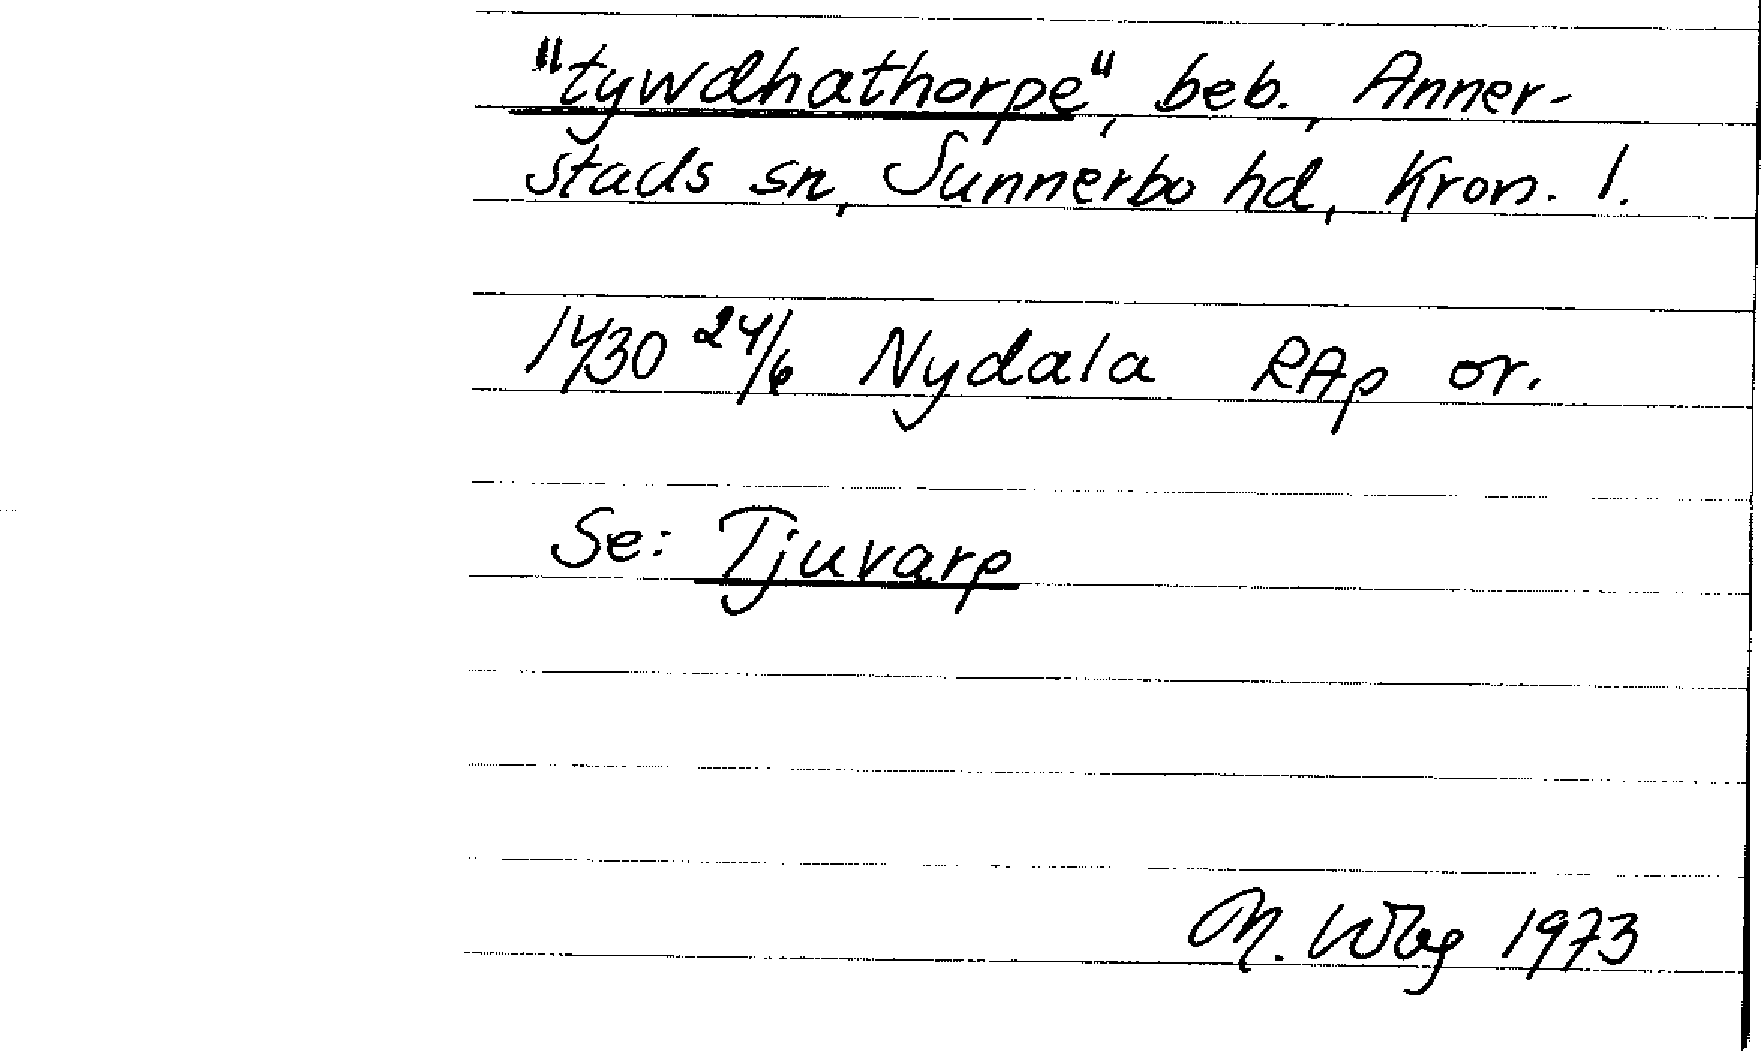 "tywdhathorpe", beb., Anner-
stads sn, Sunnerbo hd, Kron. l.
1430 24/6 Nydala RAp or.
Se: Tjuvarp
M. Wbg 1973